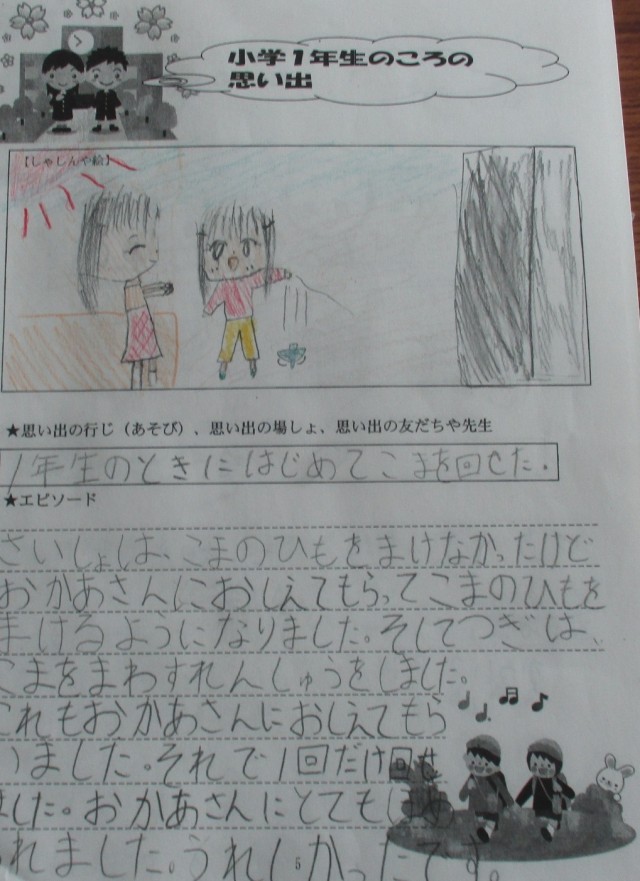 小学1年生のころの
思い出
【しゃしんや絵】
★思い出の行じ（あそび）、思い出の場しょ、思い出の友だちや先生
1年生のときにはじめてこまを回せた.
★エピソード
さいしょは、こまのひもをまけなかったけど
おかあさんにおしえてもらってこまのひもを
まけるようになりました。そしてつぎは、
こまをまわすれんしゅうをしました。
これもおかあさんにおしえてもら
いました。それで1回だけ回せ
ました。おかあさんにとてもほめ
られました。うれしかったです。
5